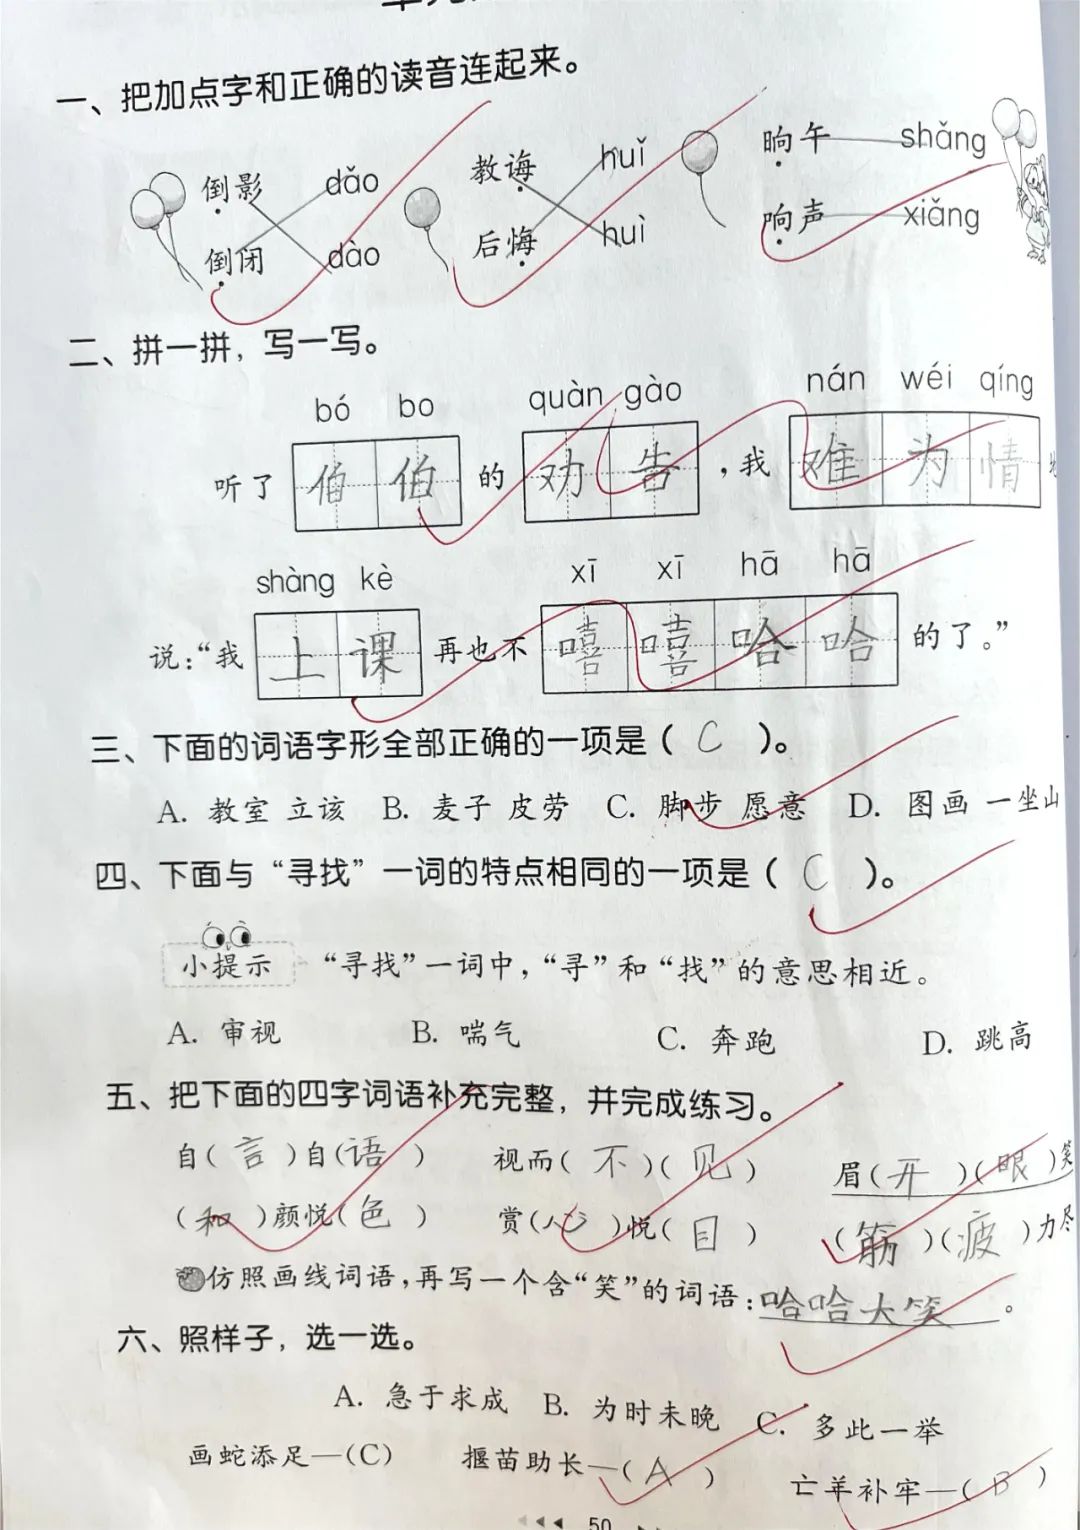 一、把加点字和正确的读音连起来。
倒影 dǎo 教诲 huǐ 晌午 shǎng
倒闭 dào 后悔 huì 响声 xiǎng
二、拼一拼，写一写。
bó bo quàn gào nán wéi qíng
听了 伯伯 的 劝告 ，我 难为情
shàng kè xī xī hā hā
说：“我 上课 再也不 嘻嘻哈哈 的了。”
三、下面的词语字形全部正确的一项是（ C ）。
A. 教室 立该 B. 麦子 皮劳 C. 脚步 愿意 D. 图画 一坐山
四、下面与“寻找”一词的特点相同的一项是（ C ）。
小提示 “寻找”一词中，“寻”和“找”的意思相近。
A. 审视 B. 喘气 C. 奔跑 D. 跳高
五、把下面的四字词语补充完整，并完成练习。
自（言）自（语） 视而（不）（见） 眉（开）（眼）笑
（和）颜悦（色） 赏（心）悦（目） （筋）（疲）力尽
仿照画线词语，再写一个含“笑”的词语：哈哈大笑。
六、照样子，选一选。
A. 急于求成 B. 为时未晚 C. 多此一举
画蛇添足—（C） 揠苗助长—（A） 亡羊补牢—（B）
50